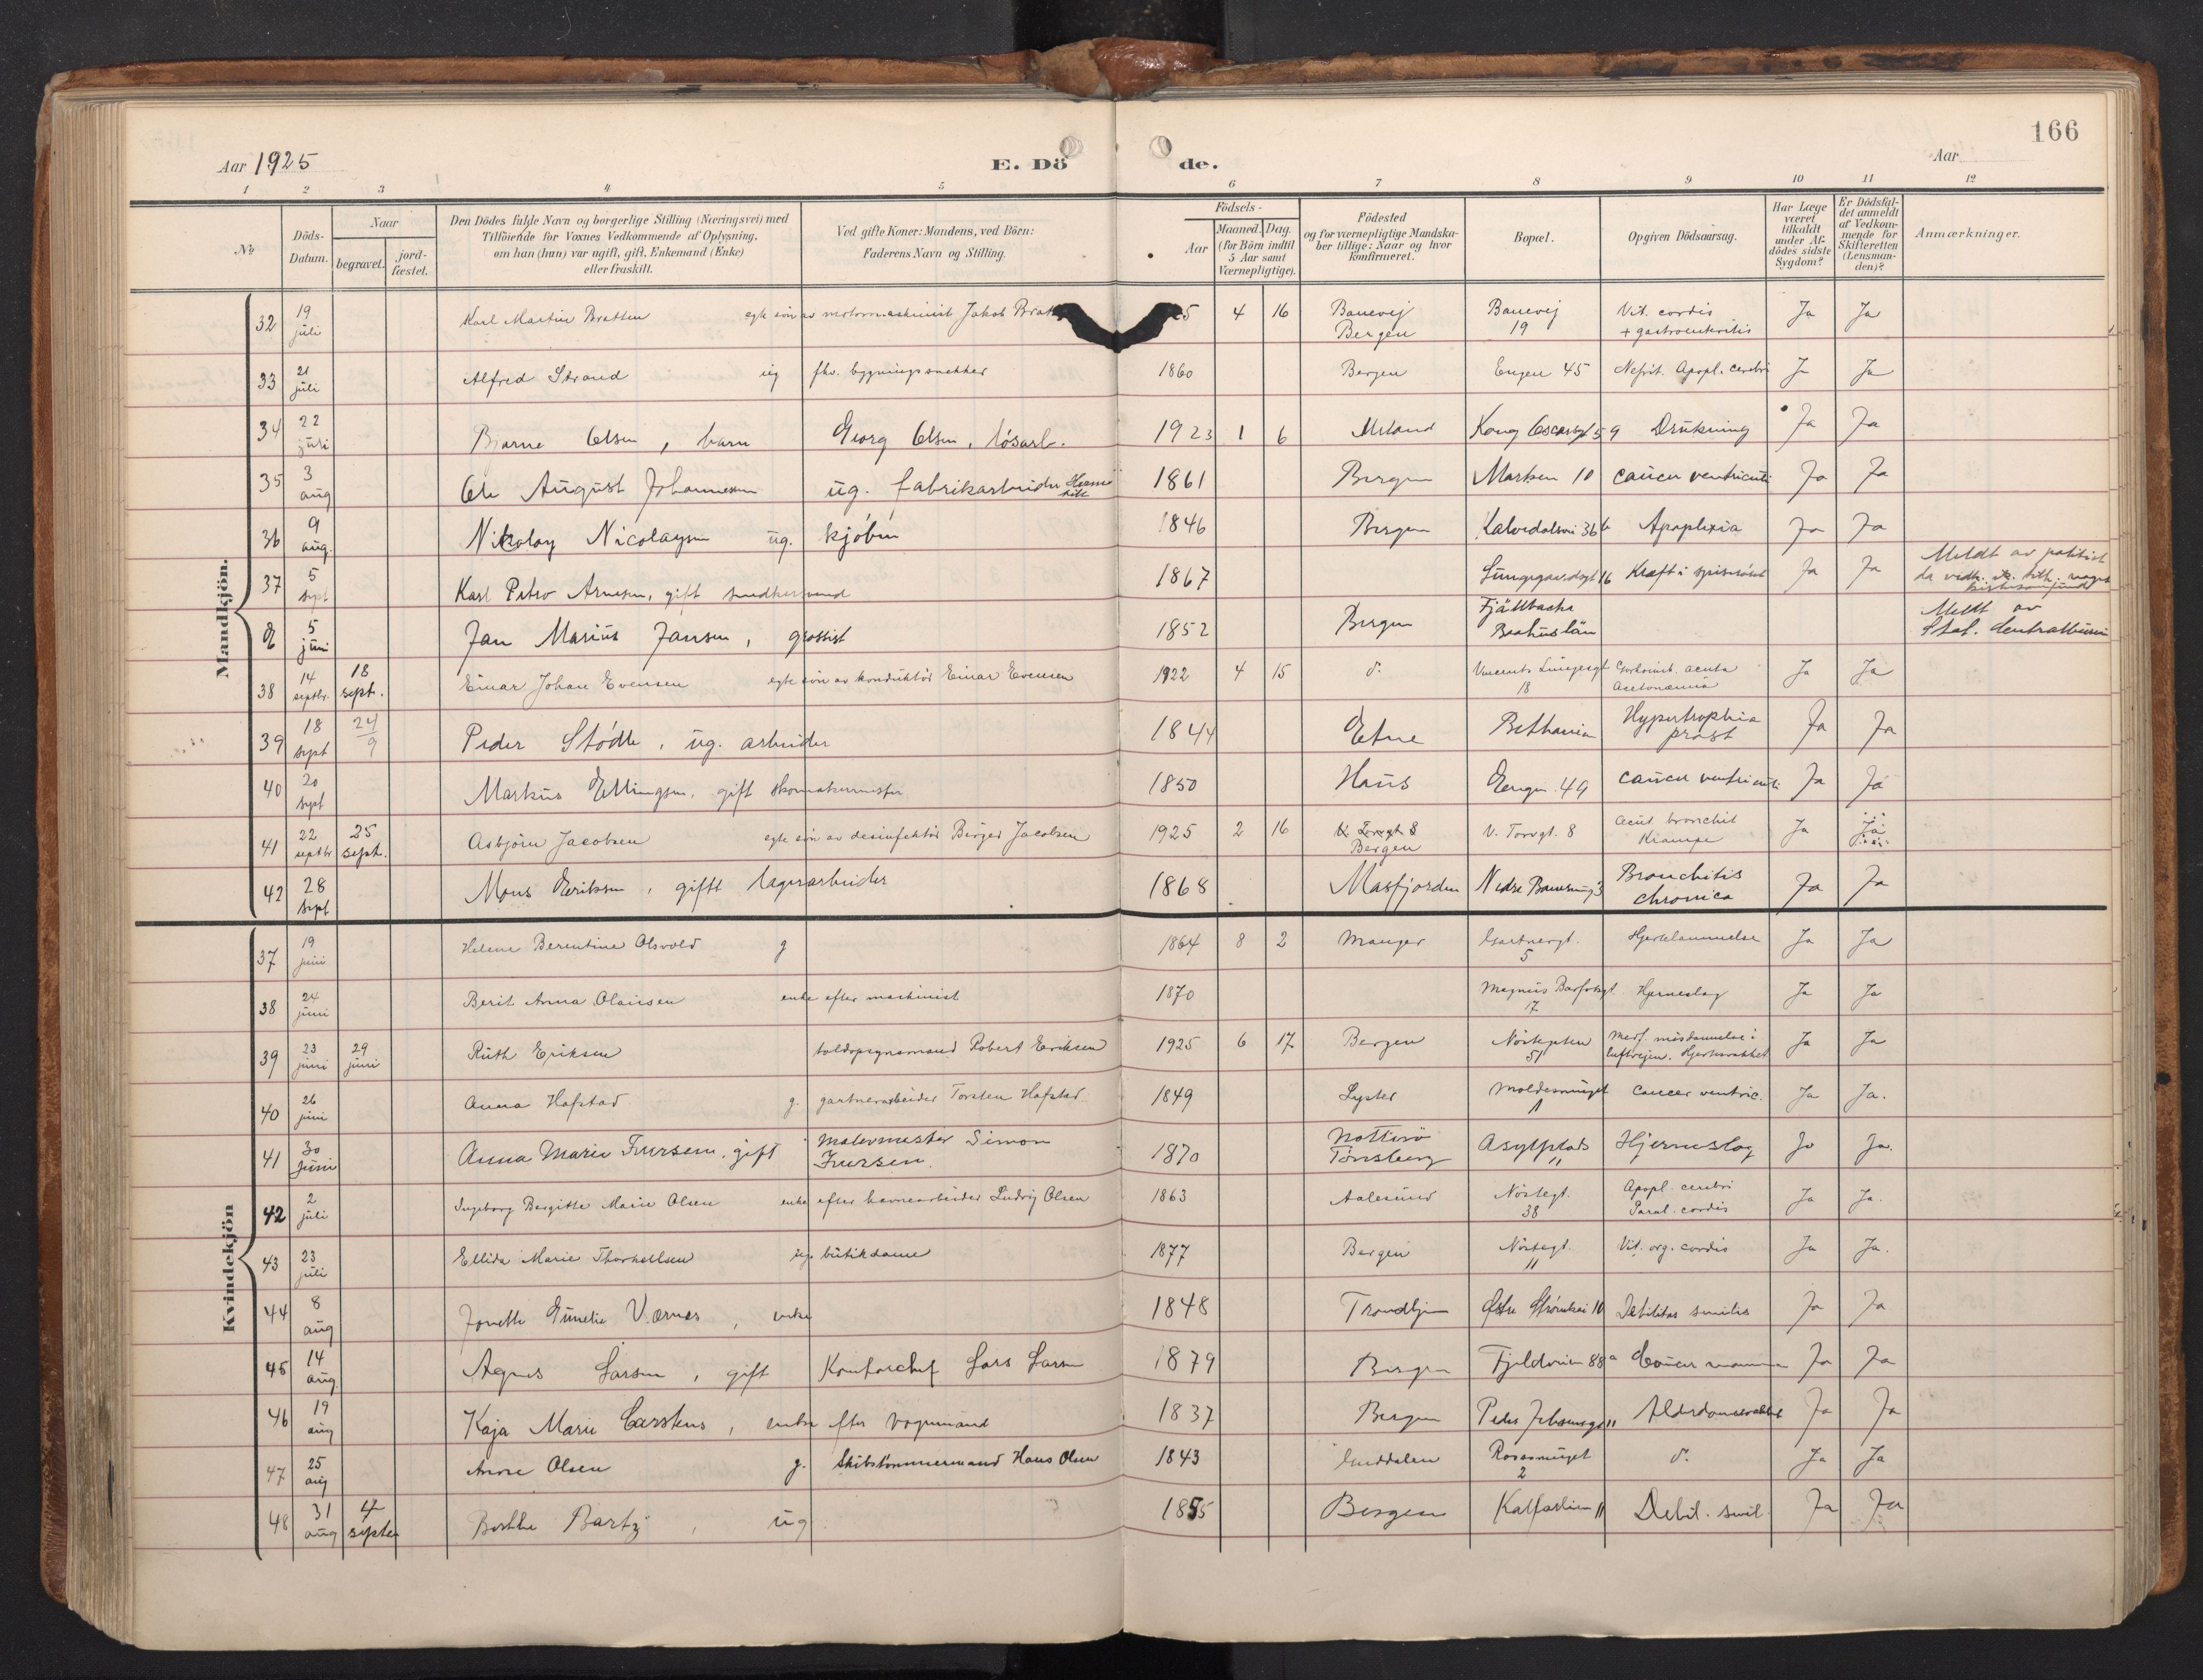 166
Aar 1925 E. Dö de. Aar
1 2 3 4 5 6 7 8 9 10 11 12
No
Döds-Datum.
Naar
begravet. jordfæstet.
Den Dödes fulde Navn og borgerlige Stilling (Næringsvei) med
Tilföiende for Voxnes Vedkommende af Oplysning,
om han (hun) var ugift, gift, Enkemand (Enke)
eller fraskilt.
Ved gifte Koner: Mandens, ved Börn:
Faderens Navn og Stilling.
Födsels-
Aar
Maaned. Dag.
(for Börn indtil
5 Aar samt
Værnepligtige).
Födested
og for værnepligtige Mandska-
ber tillige: Naar og hvor
konfirmeret.
Bopæl.
Opgiven Dödsaarsag.
Har Læge
været
tilkaldt
under Af-
dödes sidste
Sygdom?
Er Dödsfal-
det anmeldt
af Vedkom-
mende for
Skifteretten
(Lensman-
den)?
Anmærkninger.
Mandkjön.
32 19 juli Karl Martin Bratten egte søn av motormaskinist Jakob 5 4 16 Banevej Bergen Banevej 19 Vit. cordis + gastroenteritis Ja Ja
33 21 juli Alfred Strand ug fhv. bygningssnekker 1860 Bergen Engen 45 Nefrit. Apopl. cerebri Ja Ja
34 22 juli Bjarne Olsen, barn Georg Olsen, løsarb. 1923 1 6 Meland Kong Oscarsgt 59 Drukning Ja Ja
35 3 aug Ole August Johannesen ug. fabrikarbeider 1861 Bergen Marken 10 cancer ventriculi Ja Ja
36 9 aug. Nikolay Nicolaysen ug. kjøbm 1846 Bergen Kalvedalsvei 36 b Apoplexia Ja Ja
37 5 sept Karl Petro Arnesen, gift 1867 Lungegaardsgt 16 Kræft i spiserøret Ja Ja Meldt av politiet
E 5 juni Jan Marius Jansen, grossist 1852 Bergen Fjällbacka Bohuslän Meldt av Stat. Centralbureau
38 14 septbr. 18 sept. Einar Johan Evensen egte søn av konduktør Einar Evensen 1922 4 15 d. Vincents Lungesgt 18 acuta Acetonæmia Ja Ja
39 18 sept 24/9 Peder Stødle, ug. arbeider 1844 Etne Bethania Hypertrophia prost Ja Ja
40 20 sept Markus Ellingsen, gift skomakermester 1850 Haus Engen 49 cancer ventriculi Ja Ja
41 22 septbr 25 sept. Asbjørn Jacobsen egte søn av desinfektør Birger Jacobsen 1925 2 16 V. Torvgt 8 Bergen V. Torvgt. 8 acut. bronchit Krampe Ja Ja
42 28 sept Mons Eriksen, gift lagerarbeider 1868 Masfjorden Nedre 3 Bronchitis chronica Ja Ja
Kvindekjön
37 19 juni Helene Berentine Olsvold g 1864 8 2 Manger Gartnergt. 5 Hjertelammelse Ja Ja
38 24 juni Berit Anna Olaisen enke efter maskinist 1870 Magnus Barfotsgt. 17 Hjerneslag Ja Ja
39 23 juni 29 juni Ruth Eriksen toldopsynsmand Robert Eriksen 1925 6 17 Bergen Nøstegaten 51 Medf. misdannelse i luftvejen. Hjertesvakhet Ja Ja
40 26 juni Anna Hafstad g. gartnerarbeider Torsten Hafstad 1849 Lyster 1 Cancer ventric. Ja Ja.
41 30 Juni Anna Marie Fuersen, gift Malermester Simon Fuersen. 1870 Nøtterø Tønsberg Asylplads 11 Hjerneslag Ja Ja.
42 2 juli Ingeborg Bergitte Marie Olsen enke efter havnearbeider Ludvig Olsen 1863 Aalesund Nøstegt. 38 Apopl. cerebri Paral. cordis Ja Ja.
43 23 juli Ellida Marie Thorkellsen ug. butikdame 1877 Bergen Nøstegt. 11 Vit. org. cordis Ja Ja.
44 8 aug Jonette Værnes, enke 1848 Trondhjem Østre Strømkai 10 Debilitas senilis Ja Ja
45 14 aug. Agnes Larsen, gift Kontorchef Lars Larsen 1879 Bergen Fjeldveien 88a Cancer mammae Ja Ja
46 19 aug Kaja Marie Carstens, enke efter vognmand 1837 Bergen Peder Jebsensgt 11 Alderdomssvakhet Ja Ja
47 25 aug Anne Olsen g. Skibstømmermand Hans Olsen 1843 Guddalen Rosesmuget 2 d. Ja Ja
48 31 aug 4 septer Berthe Bartz, ug 1855 Bergen Kalfarlien 11 Debil. senil. Ja Ja